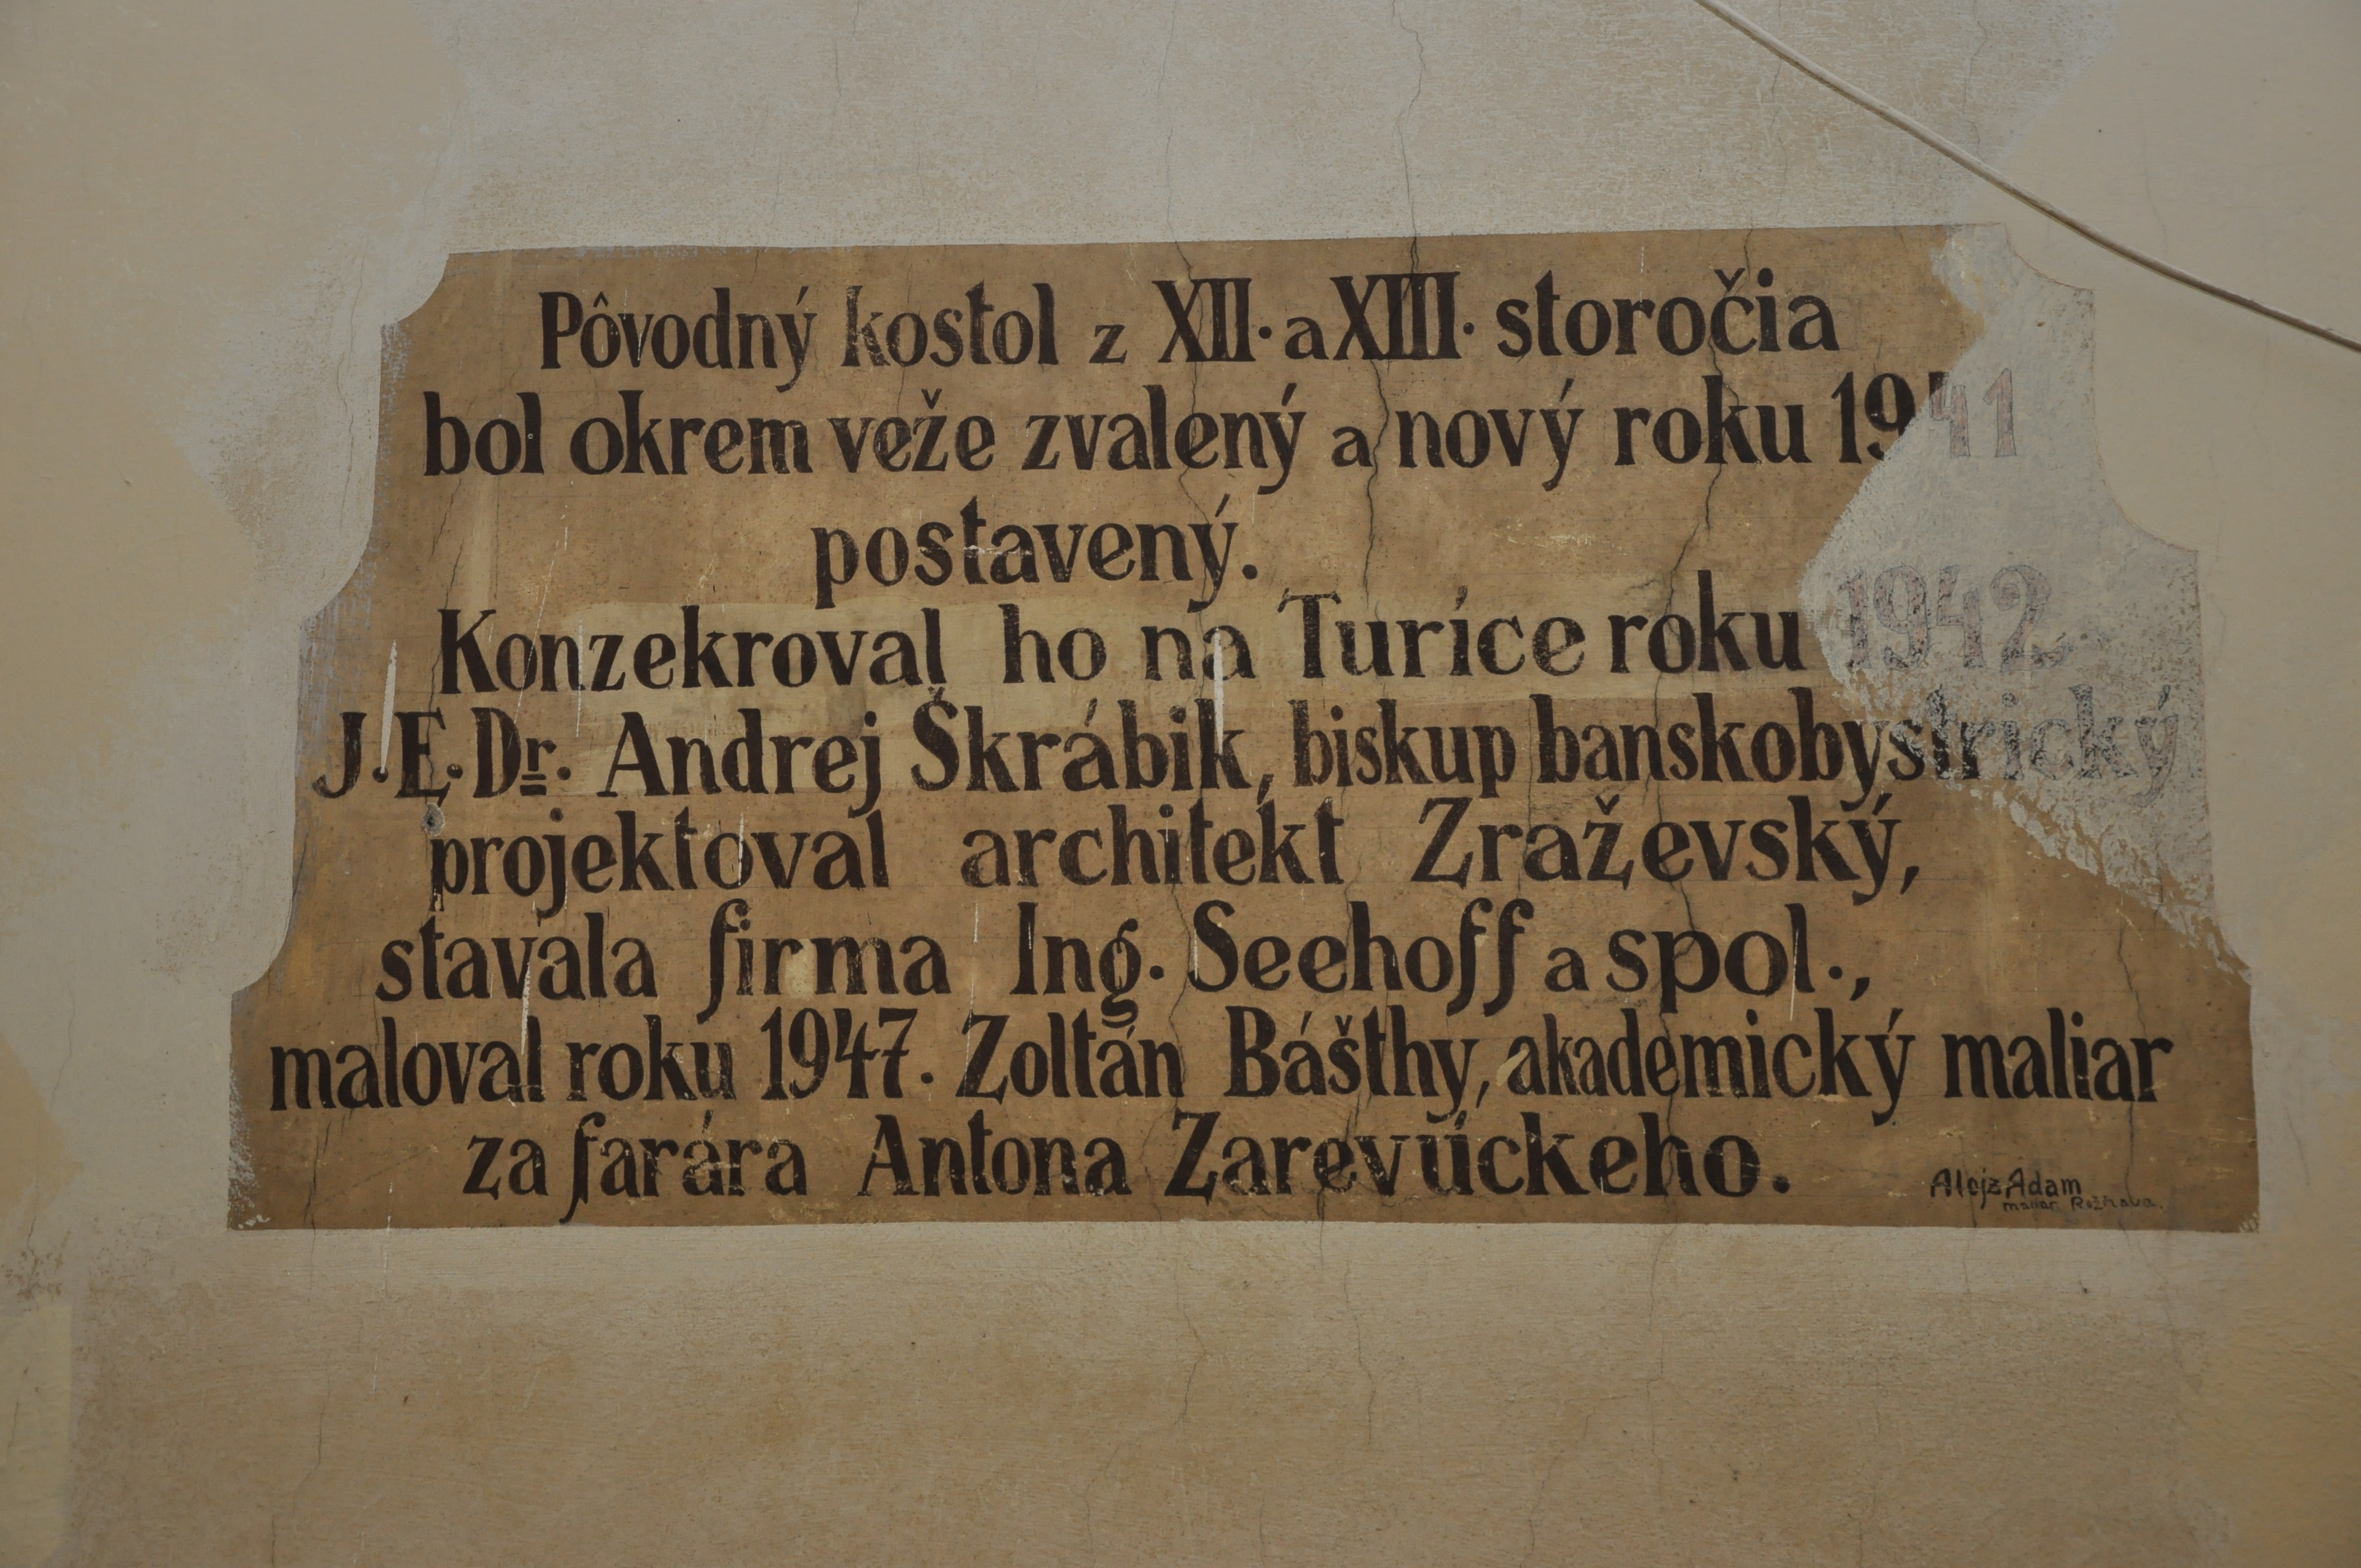 Pôvodný kostol z XII. a XIII. storočia
bol okrem veže zvalený a nový roku 1941
postavený.
Konzekroval ho na Turíce roku 1942
J.E.Dr. Andrej Škrábik, biskup banskobystrický
projektoval architekt Zraževský,
stavala firma Ing. Seehoff a spol.,
maloval roku 1947. Zoltán Bášthy, akademický maliar
za farára Antona Zarevúckeho.
Alojz Adam
maliar Rožňava.